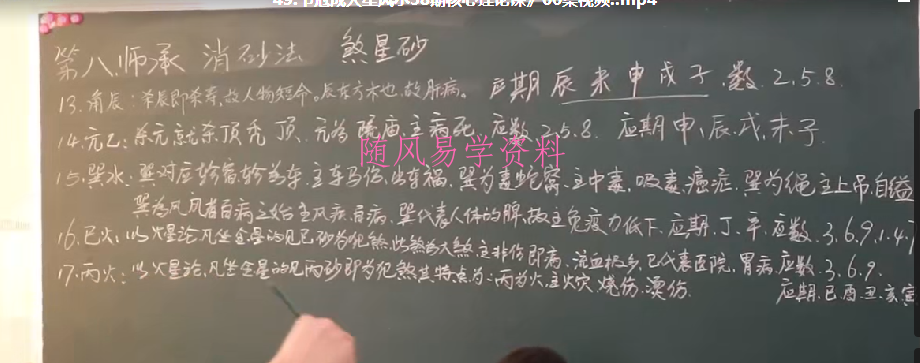 第八师承 消砂法 煞星砂
13.角辰:杀辰即杀寿,故人物短命。辰在方木也,故肝病。应期辰未申戌子.数.2.5.8.
14.亢乙:杀亢就杀顶秃顶.亢为 庙.主病死.应数.2.5.8.应期申、辰、戌、未.子
随风易学资料
15.巽水:巽对应轸宿,轸为车.主车马伤,出车祸,巽为毒蛇窝,主中毒,吸毒,癌症.巽为绳主上吊,自缢
巽为风风者百病之始主风疾,百病.巽代表人体的脾,故主免疫力低下.应期.丁.辛.应数.3.6.9.1.4.7
16.巳火:以火星论凡坐金星的见巳砂为犯煞,此煞为大煞.主非伤即病.流血极多,巳代表医院,胃病应数.3.6.9.
17.丙火:以火星论,凡坐金星的见丙砂即为犯煞其特点为:丙为火,主火灾,烧伤.烫伤.
应期.巳酉.丑.亥寅